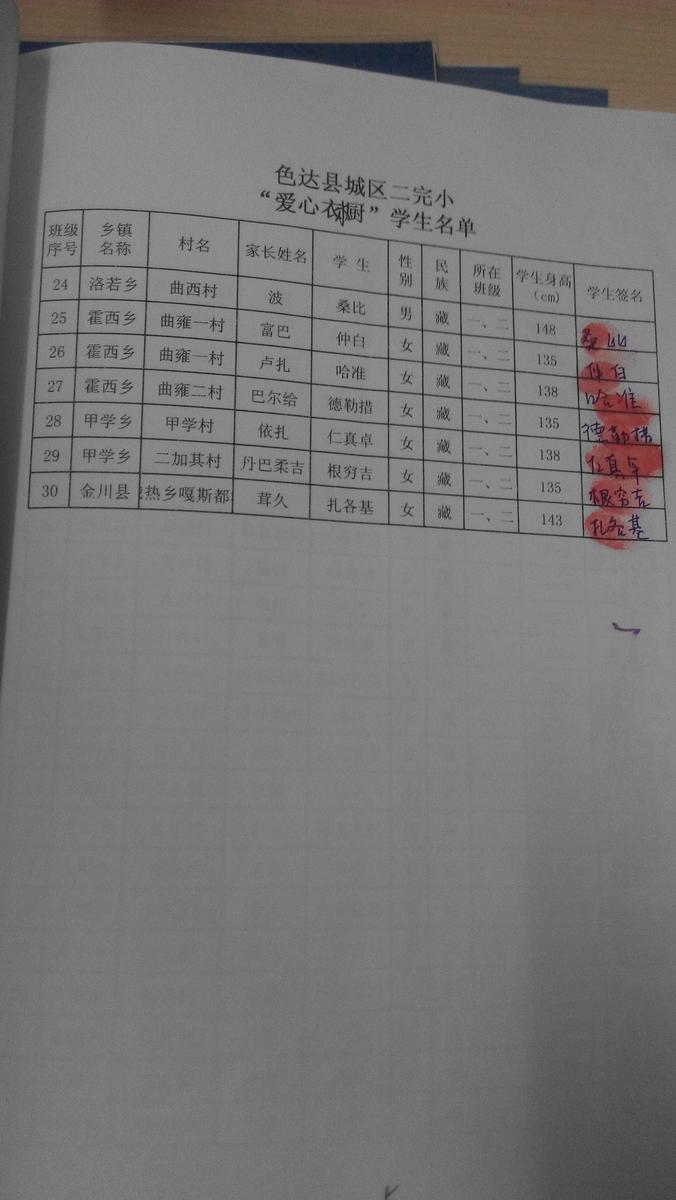 色达县城区二完小
“爱心衣橱”学生名单
班级序号 乡镇名称 村名 家长姓名 学生 性别 民族 所在班级 学生身高(cm) 学生签名
24 洛若乡 曲西村 波 桑比 男 藏 一、二 148 桑比
25 霍西乡 曲雍一村 富巴 仲白 女 藏 一、二 135 仲白
26 霍西乡 曲雍一村 卢扎 哈准 女 藏 一、二 138 哈准
27 霍西乡 曲雍二村 巴尔给 德勒措 女 藏 一、二 135 德勒措
28 甲学乡 甲学村 依扎 仁真卓 女 藏 一、二 138 仁真卓
29 甲学乡 二加其村 丹巴柔吉 根穷吉 女 藏 一、二 135 根穷吉
30 金川县 热乡嘎斯都 茸久 扎各基 女 藏 一、二 143 扎各基